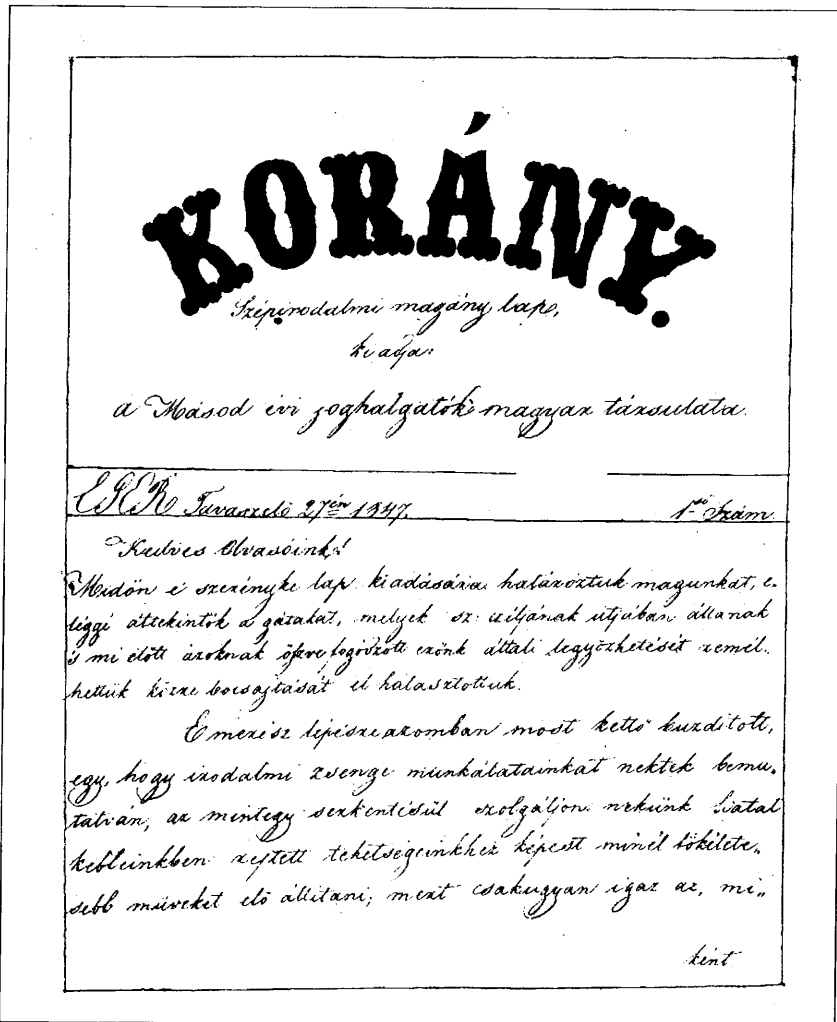 KORÁNY.
Szépirodalmi magány lap,
kiadja:
a Másod évi joghalgatók magyar társulata.
EGER Tavaszelő 27én 1847.
1ső Szám.
Kedves Olvasóink!
Midőn e szerényke lap kiadására határoztuk magunkat, e„
léggé áttekintők a gátakat, melyek sz: czéljának útjában állanak
s mi előtt azoknak össze fogózott erőnk általi legyőzhetését remél„
hettük közre bocsajtását el halasztottuk.
E merész lépésre azomban most kettő buzdított,
egy, hogy irodalmi zsenge munkálatainkat nektek bemu„
tatván, az mintegy serkentésül szolgáljon nekünk fiatal
kebleinkben rejtett tehetségeinkhez képest minél tökélete„
sebb műveket elő állitani; mert csakugyan igaz az, mi„
ként